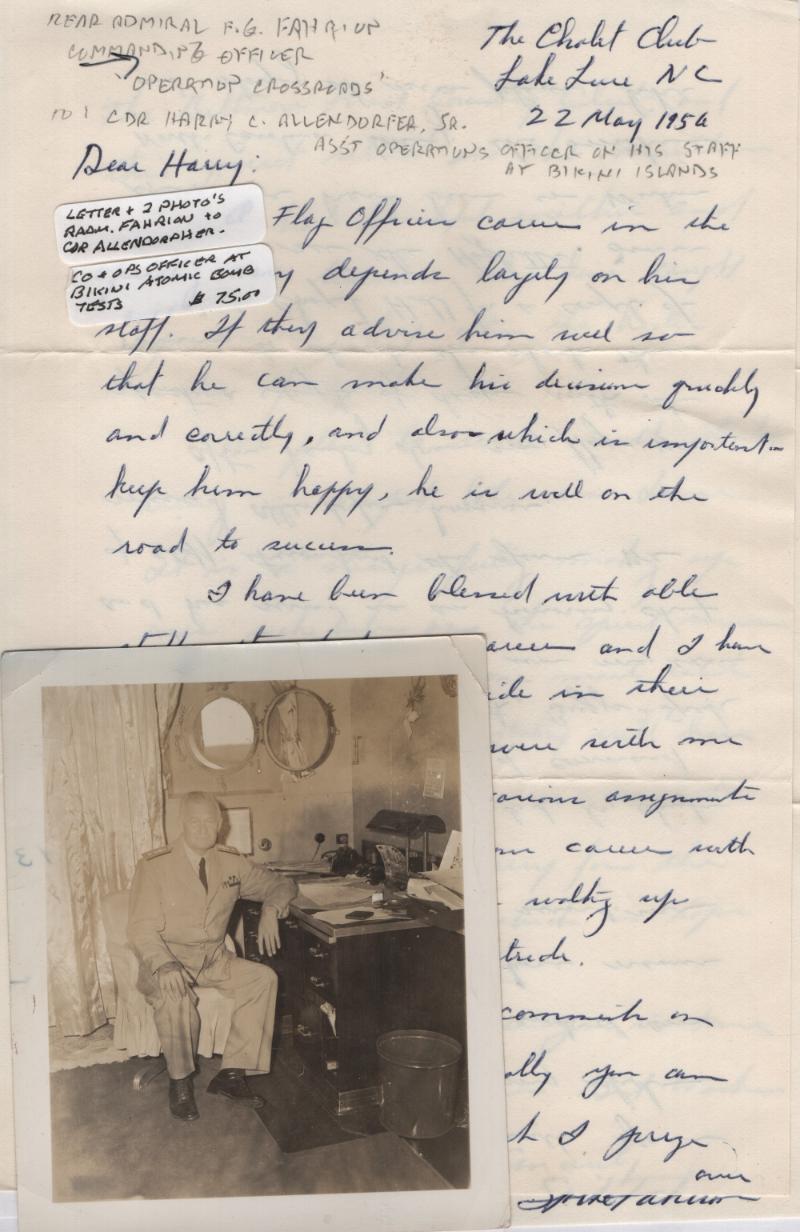 REAR ADMIRAL F.G. FAHRION
COMMANDING OFFICER
"OPERATION CROSSROADS"
TO: CDR HARRY C. ALLENDORFER, SR.
ASST OPERATIONS OFFICER ON HIS STAFF
AT BIKINI ISLANDS
The Chalet Club
Lake Lure NC
22 May 1950
Dear Harry:
LETTER + 2 PHOTO'S
RADM. FAHRION to
CDR ALLENDORPHER.
CO + OPS OFFICER AT
BIKINI ATOMIC BOMB
TESTS $ 75.00
Flag Officers career in the
depends largely on his
staff. If they advise him well so
that he can make his decision quickly
and correctly, and also which is important
keep him happy, he is well on the
road to success.
I have been blessed with able
and I have
in their
were with me
various assignments
career with
up
comments on
you are
I prize
over